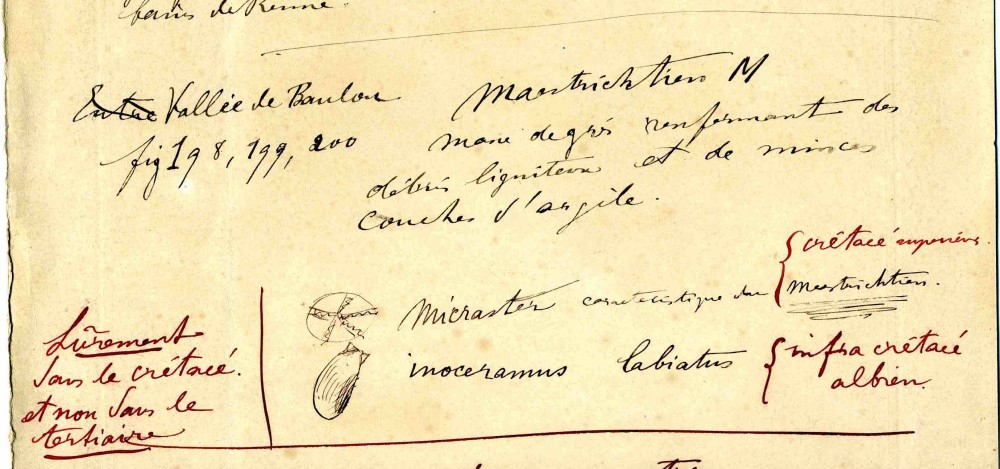 bains de Renne.
Entre Vallée de Baulou
fig 198, 199, 200
Maestrichtien M
marne de grés renfermant des
débris ligniteux et de minces
couches d'argile.
Micraster caracteristique du { crétacé superieur
maestrichtien.
inoceramus labiatus { infra crétacé
albien.
Sûrement
dans le crétacé.
et non dans le
tertiaire